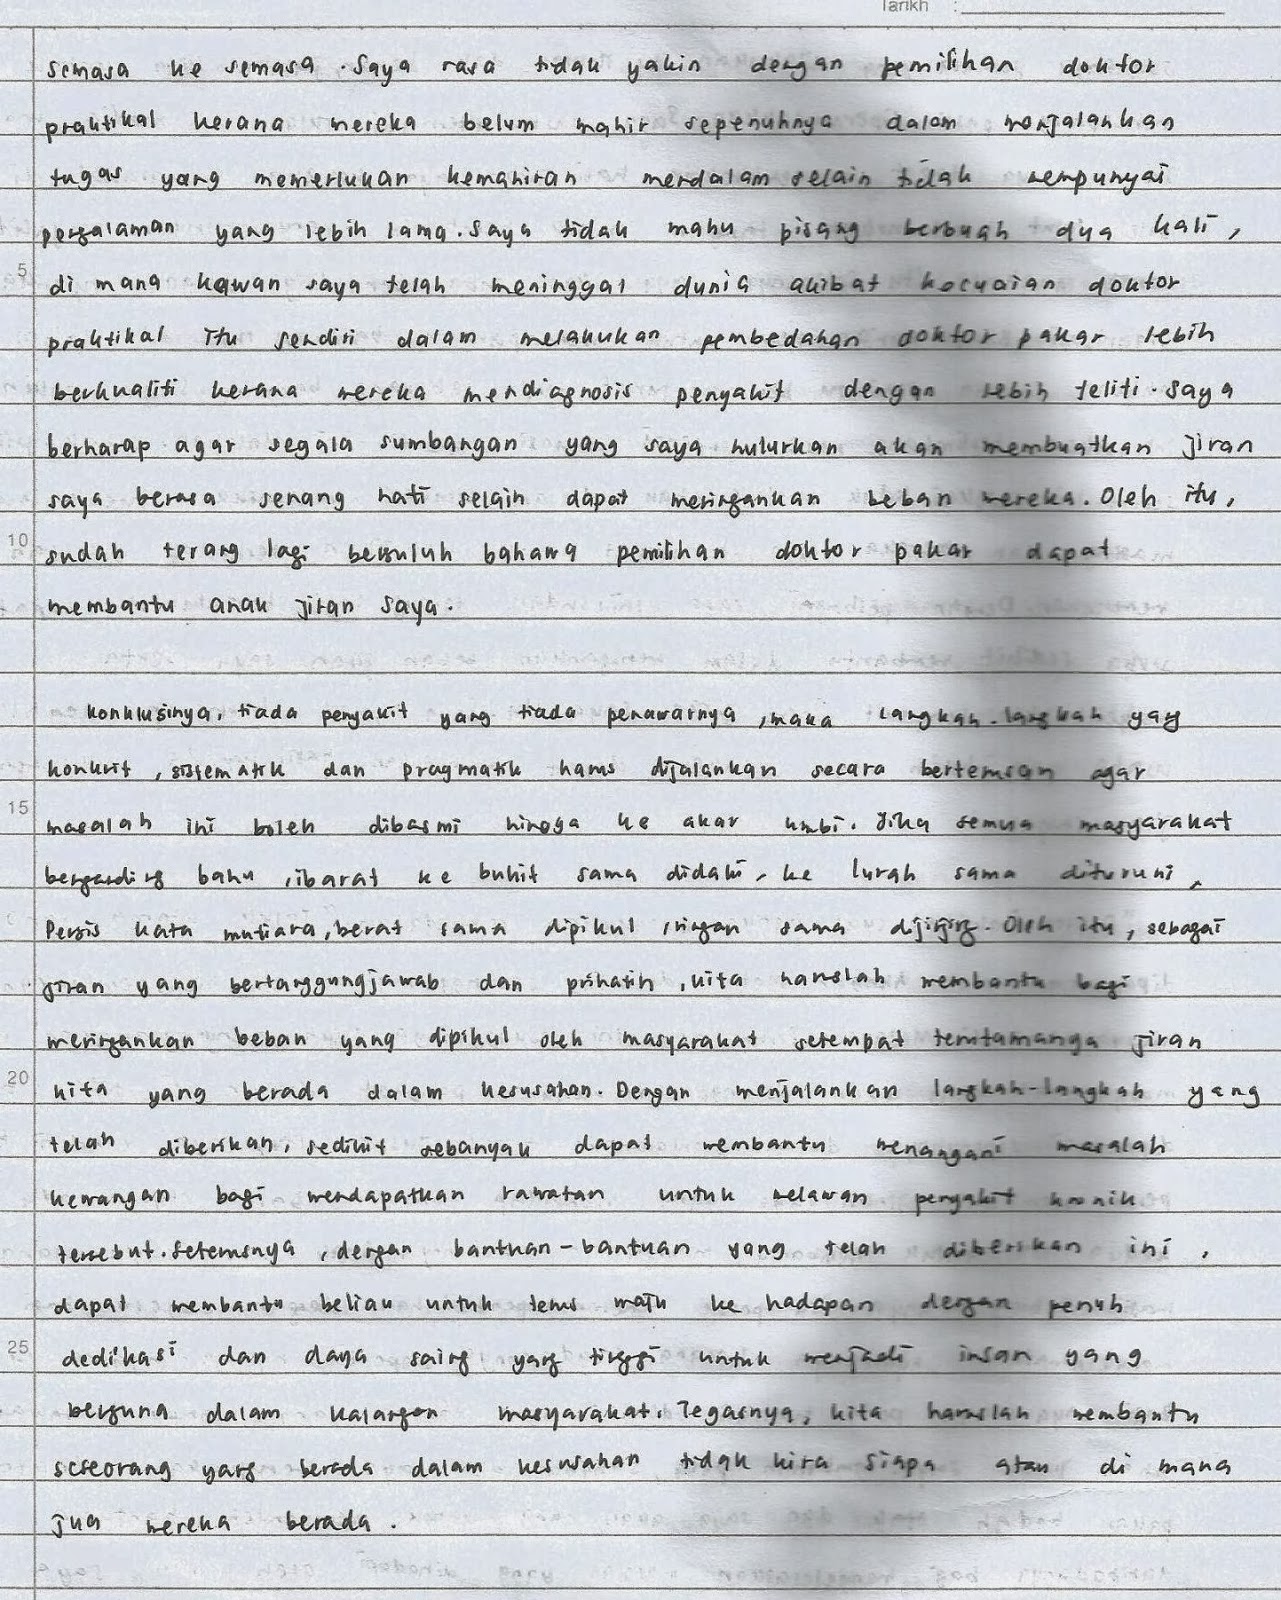 Tarikh :
semasa ke semasa. Saya rasa tidak yakin dengan pemilihan doktor
praktikal kerana mereka belum mahir sepenuhnya dalam menjalankan
tugas yang memerlukan kemahiran mendalam selain tidak mempunyai
pengalaman yang lebih lama. Saya tidak mahu pisang berbuah dua kali,
5 di mana kawan saya telah meninggal dunia akibat kecuaian doktor
praktikal itu sendiri dalam melakukan pembedahan doktor pakar lebih
berkualiti kerana mereka mendiagnosis penyakit dengan lebih teliti. Saya
berharap agar segala sumbangan yang saya hulurkan akan membuatkan jiran
saya berasa senang hati selain dapat meringankan beban mereka. Oleh itu,
10 sudah terang lagi bersuluh bahawa pemilihan doktor pakar dapat
membantu anak jiran saya.
Konklusinya, tiada penyakit yang tiada penawarnya, maka langkah-langkah yang
konkrit, sistematik dan pragmatik harus dijalankan secara berterusan agar
15 masalah ini boleh dibasmi hingga ke akar umbi. Jika semua masyarakat
berganding bahu, ibarat ke bukit sama didaki, ke lurah sama dituruni,
Persis kata mutiara, berat sama dipikul, ringan sama dijinjing. Oleh itu, sebagai
jiran yang bertanggungjawab dan prihatin, kita haruslah membantu bagi
meringankan beban yang dipikul oleh masyarakat setempat terutamanya jiran
20 kita yang berada dalam kesusahan. Dengan menjalankan langkah-langkah yang
telah diberikan, sedikit sebanyak dapat membantu menangani masalah
kewangan bagi mendapatkan rawatan untuk melawan penyakit kronik
tersebut. Seterusnya, dengan bantuan-bantuan yang telah diberikan ini,
dapat membantu beliau untuk terus maju ke hadapan dengan penuh
25 dedikasi dan daya saing yang tinggi untuk menjadi insan yang
berguna dalam kalangan masyarakat. Tegasnya, kita haruslah membantu
seseorang yang berada dalam kesusahan tidak kira siapa atau di mana
jua mereka berada.